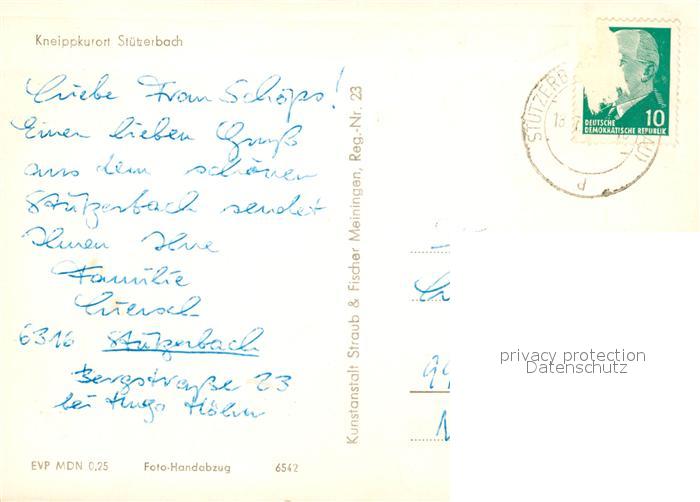 Kneippkurort Stützerbach
Liebe Frau Schöps!
Einen lieben Gruß
aus dem schönen
Stützerbach sendet
Ihnen Ihre
Familie
6316 Stützerbach
Bergstraße 23
bei Hugo
EVP MDN 0,25 Foto-Handabzug 6542
Kunstanstalt Straub & Fischer Meiningen, Reg.-Nr. 23
10
DEUTSCHE
DEMOKRATISCHE REPUBLIK
privacy protection
Datenschutz